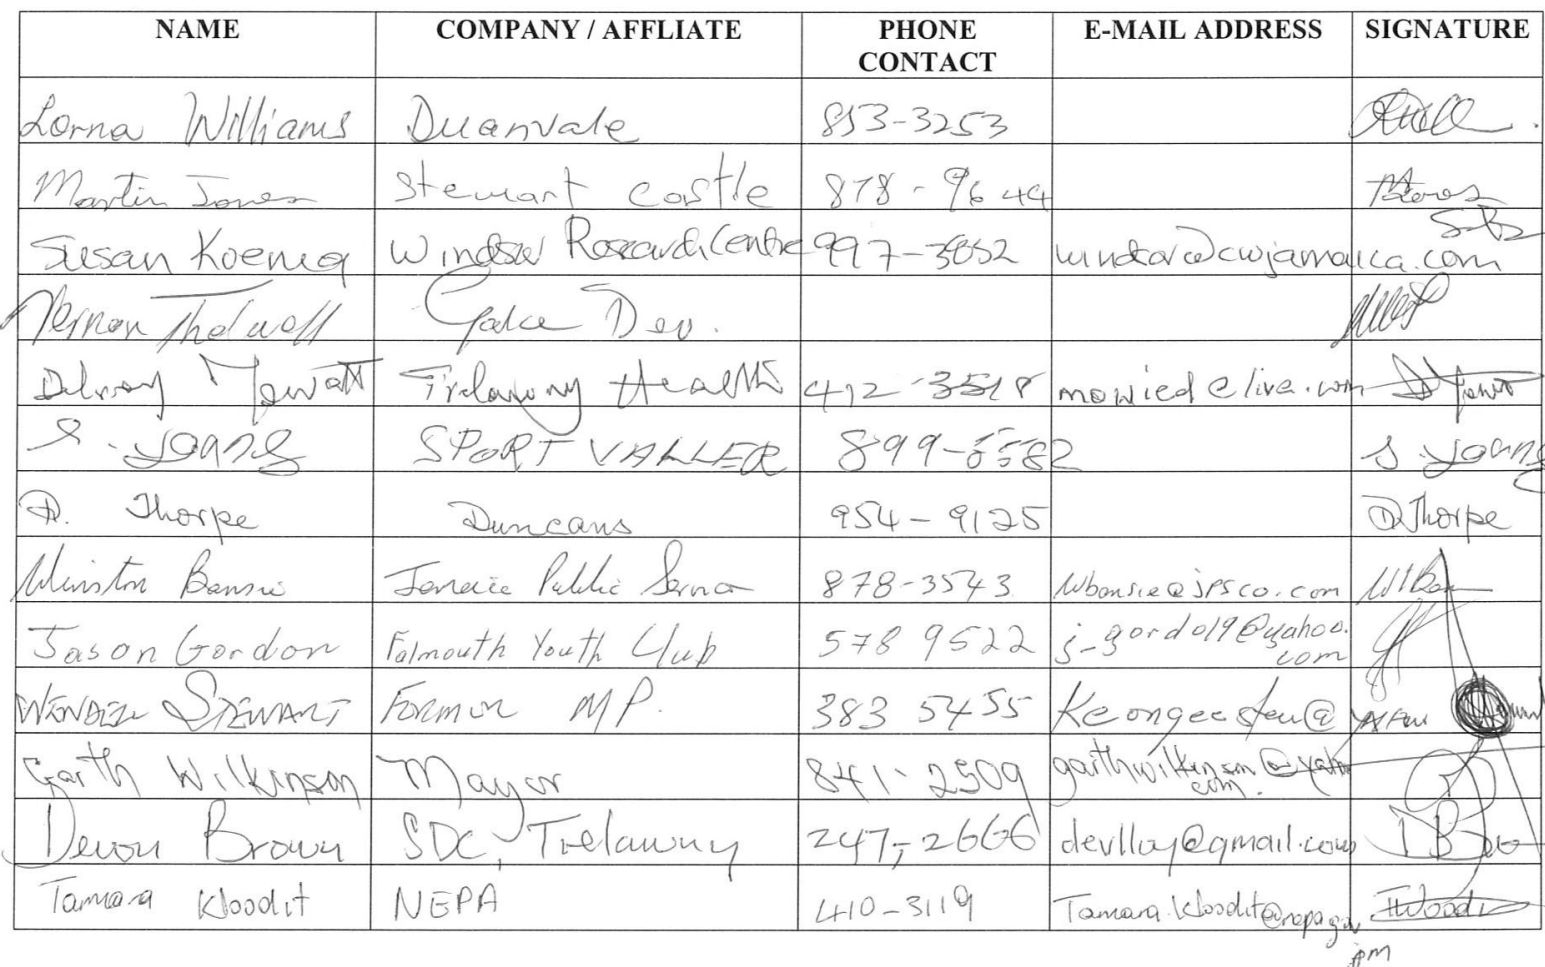 NAME COMPANY / AFFLIATE PHONE CONTACT E-MAIL ADDRESS SIGNATURE
Lorna Williams Duanvale 853-3253
Martin Jones Stewart Castle 878-9644
Susan Koenig Windsor Research Centre 997-3852 windsor@cwjamaica.com
Vernon Thelwell Dev.
Delroy Mowatt Trelawny Health 412-3518 mowied@live.com
S. Young SPORT VALLER S. Young
D. Thorpe Duncans 954-9125 D Thorpe
Winston Bansie Jamaica Public Service 878-3543 wbansie@jpsco.com
Jason Gordon Falmouth Youth Club 578 9522 j-gordo19@yahoo.
com
WENDELL STEWART Former MP. 383 5455
Garth Wilkinson Mayor 841-2509 garthwilkinson@yahoo
com.
Devon Brown SDC, Trelawny 247-2666 devlloy@gmail.com
Tamara Woodit NEPA 410-3119 Tamara.Woodit@nepa.gov